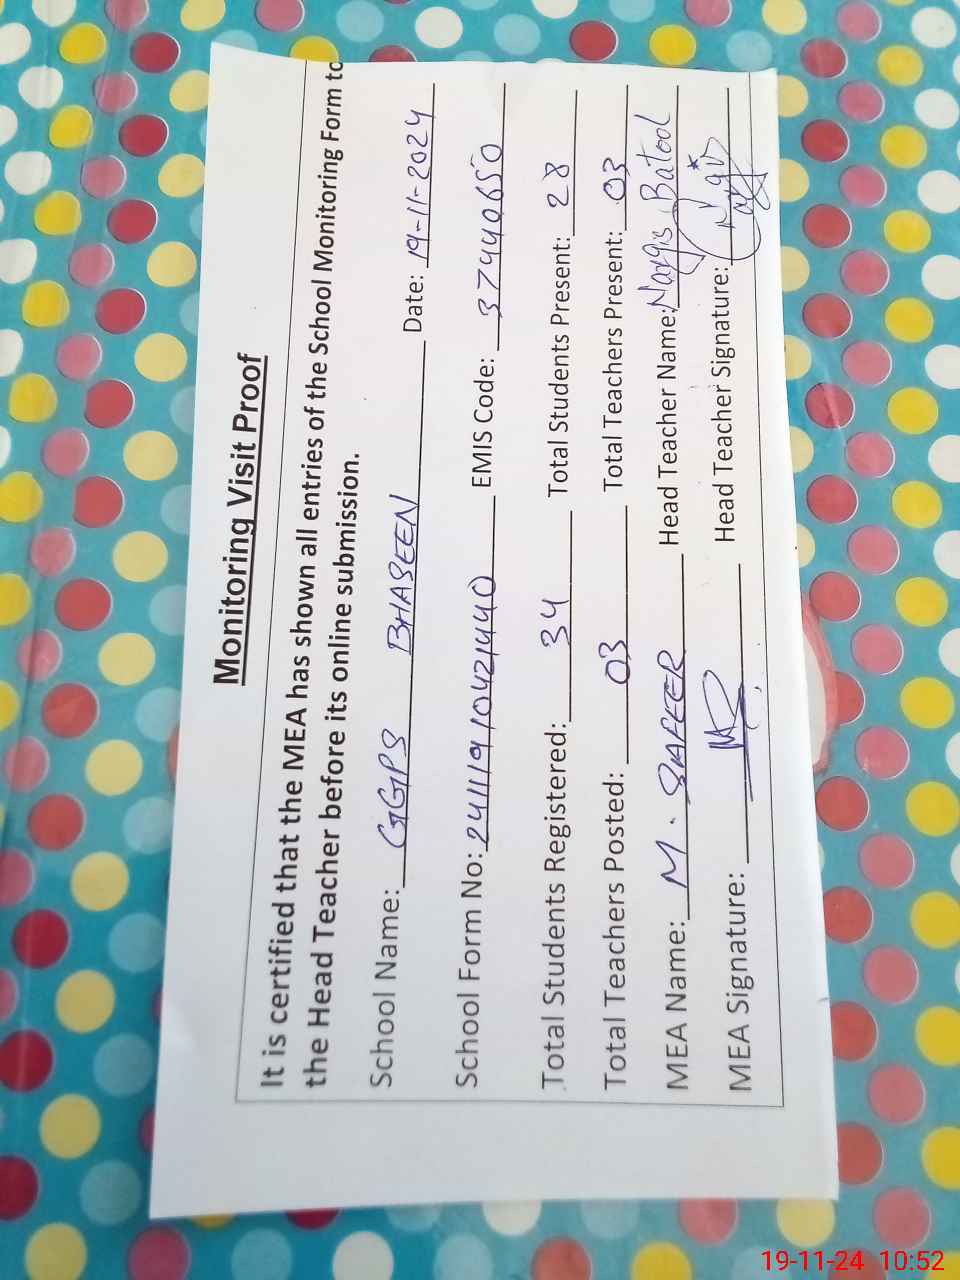 Monitoring Visit Proof
It is certified that the MEA has shown all entries of the School Monitoring Form to
the Head Teacher before its online submission.
School Name: GGPS BHASEEN Date: 19-11-2024
School Form No: 24111910421440 EMIS Code: 37440650
Total Students Registered: 34 Total Students Present: 28
Total Teachers Posted: 03 Total Teachers Present: 03
MEA Name: M. SAFEER Head Teacher Name: Nargis Batool
MEA Signature: Head Teacher Signature: Nargis
19-11-24 10:52